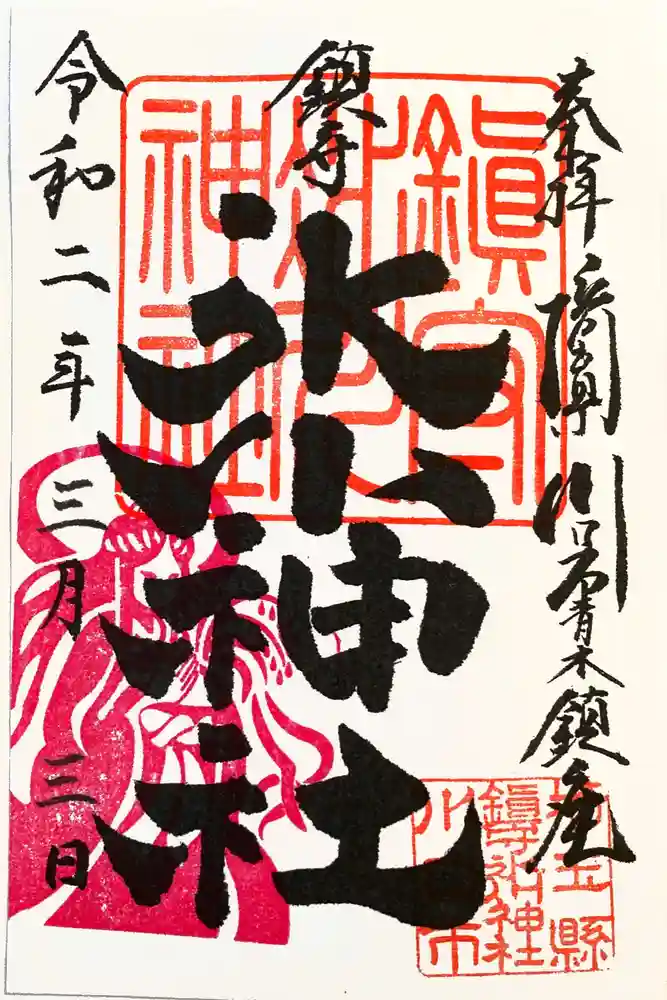 奉拝 川口市青木鎮座
鎮守
氷川神社
令和二年 三月 三日
鎭守
氷川
神社
埼玉縣
鎭守氷川神社
川口市